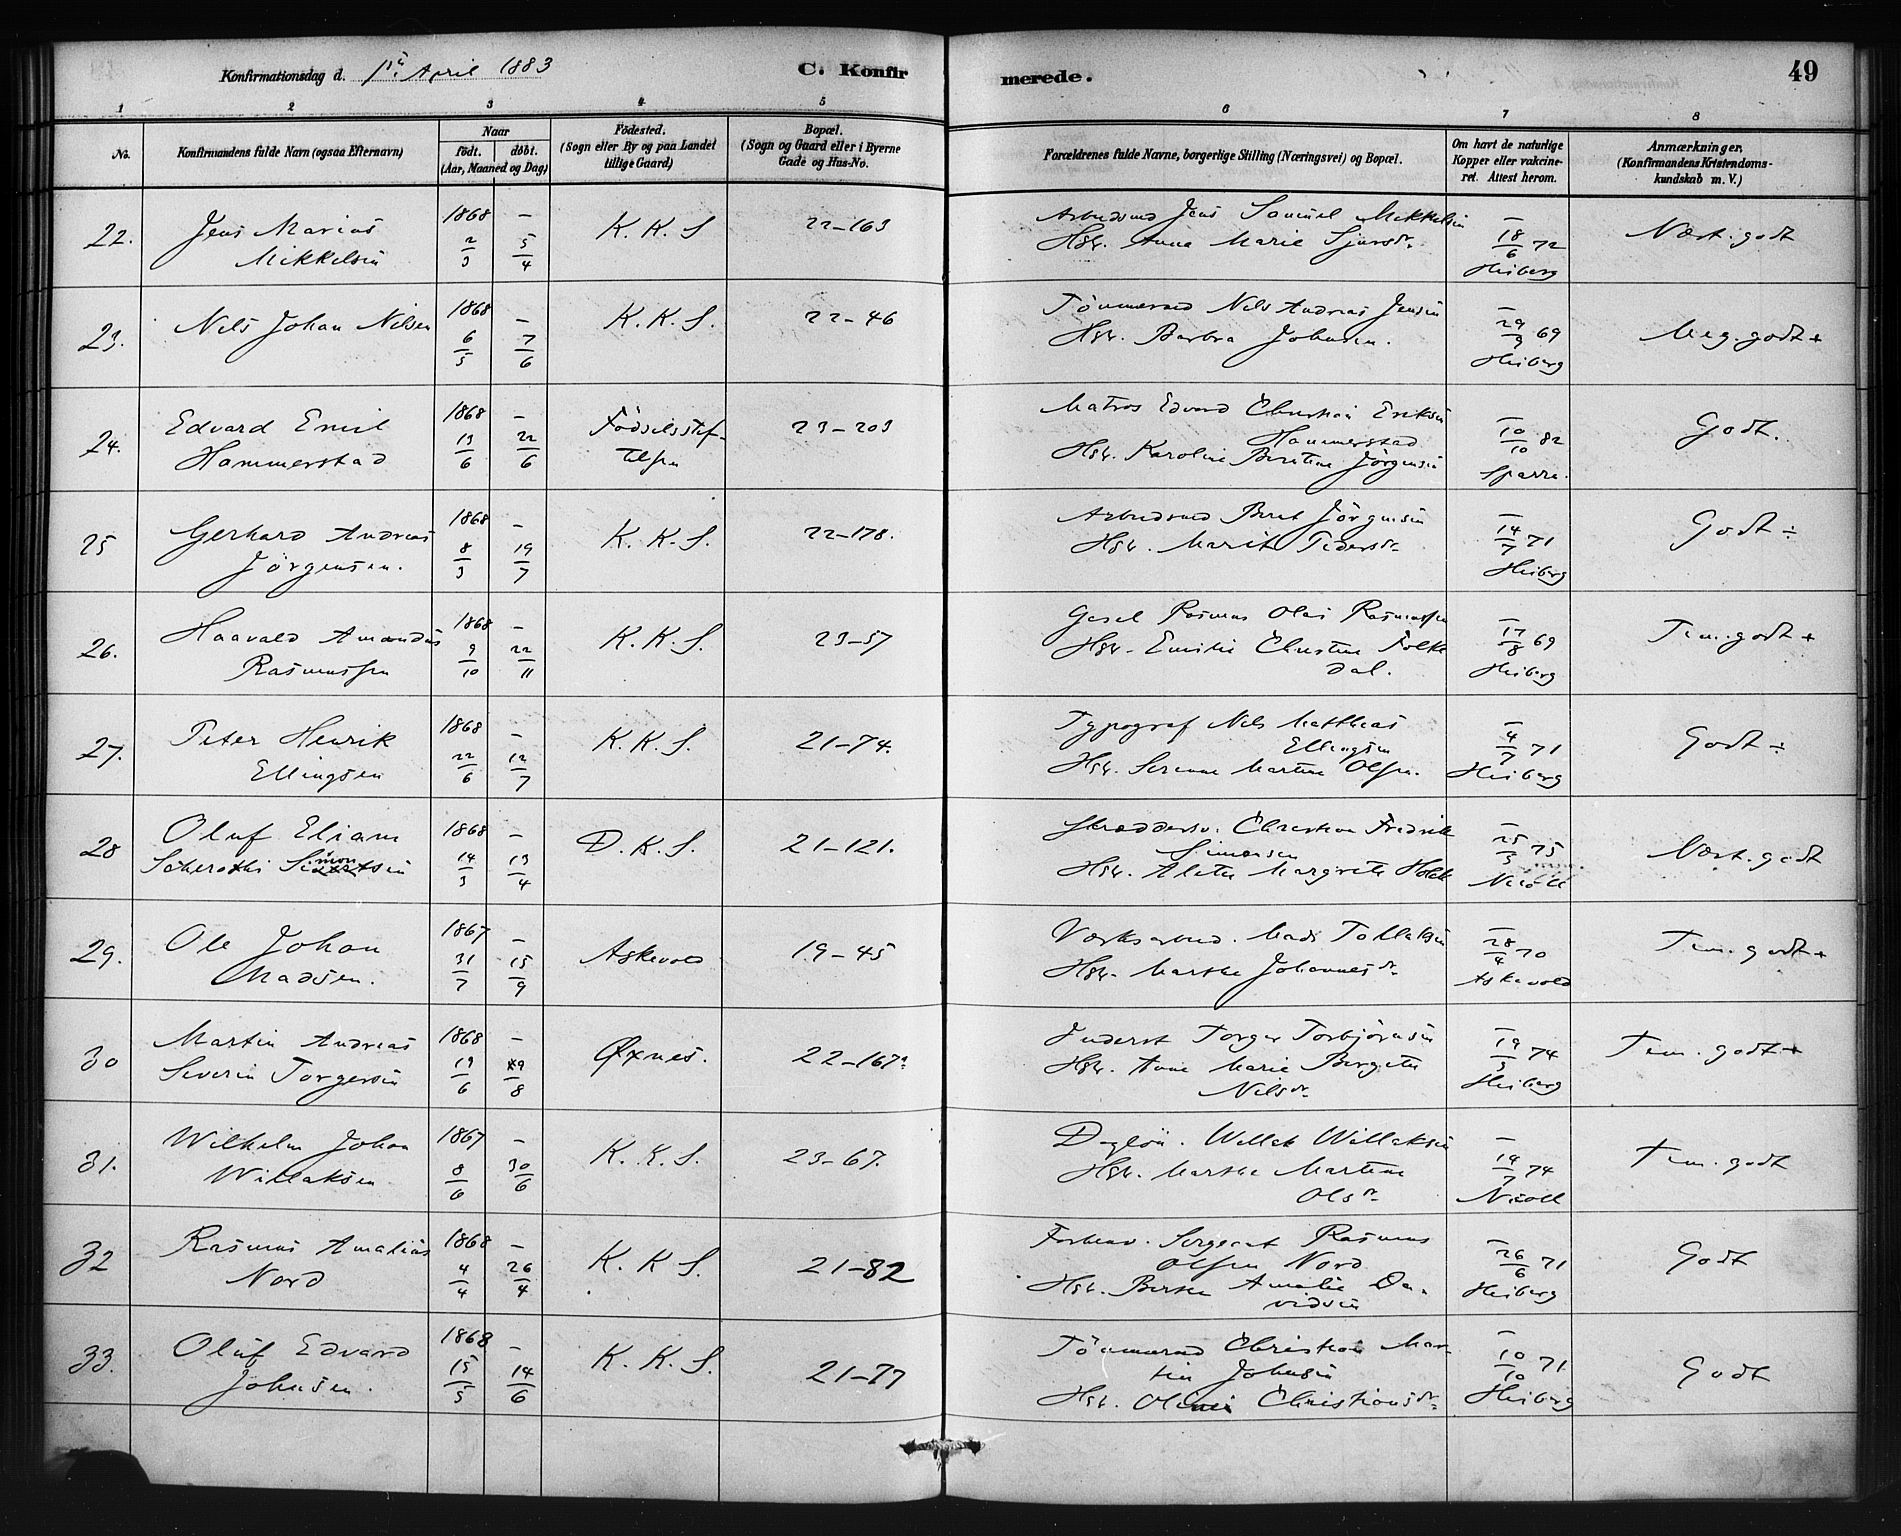 Konfirmationsdag d. 1ste April 1883
C. Konfirmerede.
49
1 2 3 4 5 6 7 8
No.
Konfirmandens fulde Navn (ogsaa Efternavn)
Naar
født. døbt.
(Aar, Maaned og Dag)
Fødested.
(Sogn eller By og paa Landet
tillige Gaard)
Bopæl.
(Sogn og Gaard eller i Byerne
Gade og Hus-No.
Forældrenes fulde Navne, borgerlige Stilling (Næringsvei) og Bopæl.
Om havt de naturlige
Kopper eller vakcine-
ret. Attest herom.
Anmærkninger.
(Konfirmandens Kristendoms-
kundskab m. V.)
22. Jens Marius Mikkelsen 1868 2/3 – 5/4 K. K. S 22–163
Arbeidsmd Jens Samuel Mikkelsen
Hst. Anna Marie Sjursdr.
– 18/6 72 Heiberg
Næst. godt
23. Nils Johan Nilsen 1868 6/5 – 7/6 K. K. S. 22–46
Tømmermd Nils Andreas Jensen
Hst. Barbra Johnsen.
– 29/9 69 Heiberg
Meg. godt +
24. Edvard Emil Hammerstad 1868 13/6 – 22/6 Fødselsstiftelsen 23–203
Matros Edvard Christian Eriksen
Hammerstad
Hst. Karoline Berntine Jørgensen
– 10/10 82 Sparre.
Godt.
25 Gerhard Andreas Jørgensen. 1868 8/3 – 19/7 K. K. S. 22–178.
Arbeidsmd Bent Jørgensen
Hst. Marit Pedersdr.
– 14/7 71 Heiberg
Godt ÷
26. Haavald Amandus Rasmussen 1868 9/10 – 22/11 K. K. S. 23–57
Gesel Rasmus Olai Rasmussen
Hst. Emilie Christine Folke
dal.
– 17/8 69 Heiberg
Tem. godt +
27. Peter Henrik Ellingsen 1868 22/6 – 12/7 K. K. S. 21–74.
Typograf Nils Matthias
Ellingsen
Hst. Serenne Martine Olsen.
– 4/7 71 Heiberg
Godt ÷
28 Oluf Eliam 1868 14/3 – 13/4 D. K. S. 21–121.
Skræddersv. Christian Fredrik
Simonsen
Hst. Aletta Margrete Holck
– 25/3 75 Nicoll
Næst. godt
29. Ole Johan Madsen. 1867 31/7 – 15/9 Askevold 19–45
Værksarbeid. Mads Tollaksen
Hst. Marthe Johannesdr.
– 28/4 70 Askevold
Tem. godt +
30 Martin Andreas Severin Torgersen 1868 19/6 – 8 Øxnes. 22–167a
Inderst Torger Torbjørnsen
Hst. Anne Marie Bergitte
Nilsdr.
– 19/3 74 Heiberg
Tem. godt +
31. Wilhelm Johan Willaksen 1867 8/6 – 30/6 K. K. S. 23–67.
Dagløn. Willak Willaksen
Hst. Marthe Martine
Olsdr.
– 19/7 74 Nicoll
Tem. godt
32 Rasmus Amalius Nord 1868 4/4 – 26/4 K. K S. 21–82
Forhenv. Sergeant Rasmus
Olsen Nord
Hst. Berthe Amalie Da-
vidsen
– 26/6 71 Heiberg
Godt
33. Oluf Edvard Johnsen. 1868 15/5 – 14/6 K. K. S. 21–77
Tømmermd Christian Mar-
tin Johnsen
Hst. Christiansdr.
– 10/10 71. Heiberg
Godt